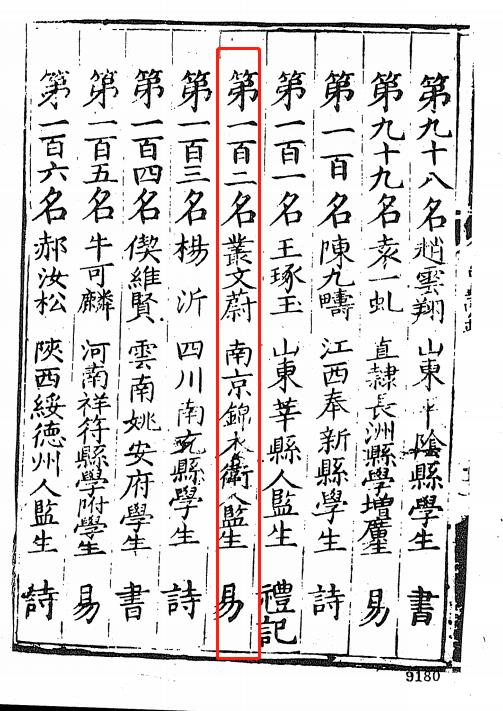 第九十八名趙雲翔 山東平陰縣學生 書
第九十九名袁一虬 直隸長洲縣學增廣生 易
第一百名陳九疇 江西奉新縣學生 詩
第一百一名王琢玉 山東莘縣人監生 禮記
第一百二名叢文蔚 南京錦衣衛人監生 易
第一百三名楊沂 四川南充縣學生 詩
第一百四名偰維賢 雲南姚安府學生 書
第一百五名牛可麟 河南祥符縣學附學生 易
第一百六名郝汝松 陝西綏德州人監生 詩
9180